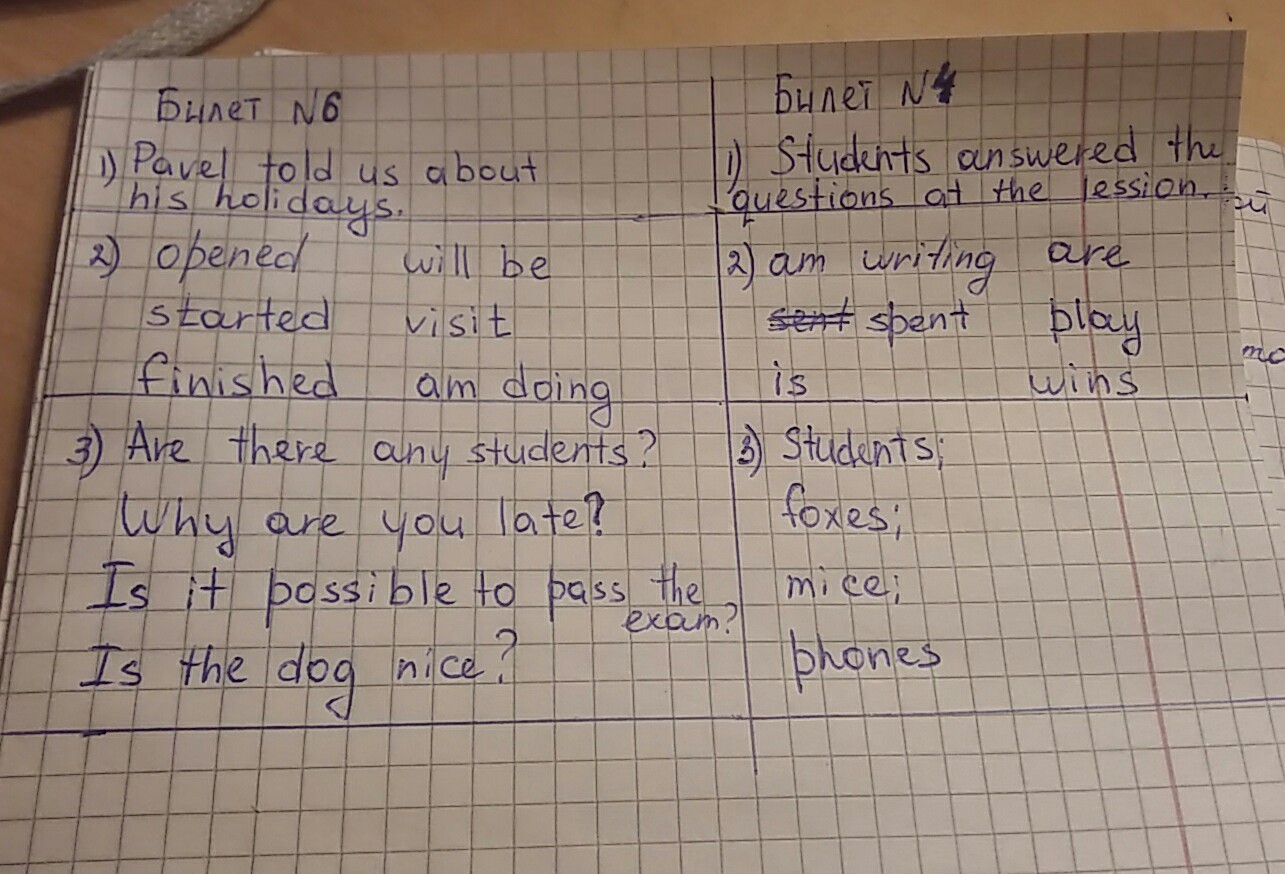 Билет N6
1) Pavel told us about
his holidays.
2) opened will be
started visit
finished am doing
3) Are there any students?
Why are you late?
Is it possible to pass the
exam?
Is the dog nice?
Билет N4
1) Students answered the
questions at the lession.
2) am writing are
sent spent play
is wins
3) Students;
foxes;
mice;
phones